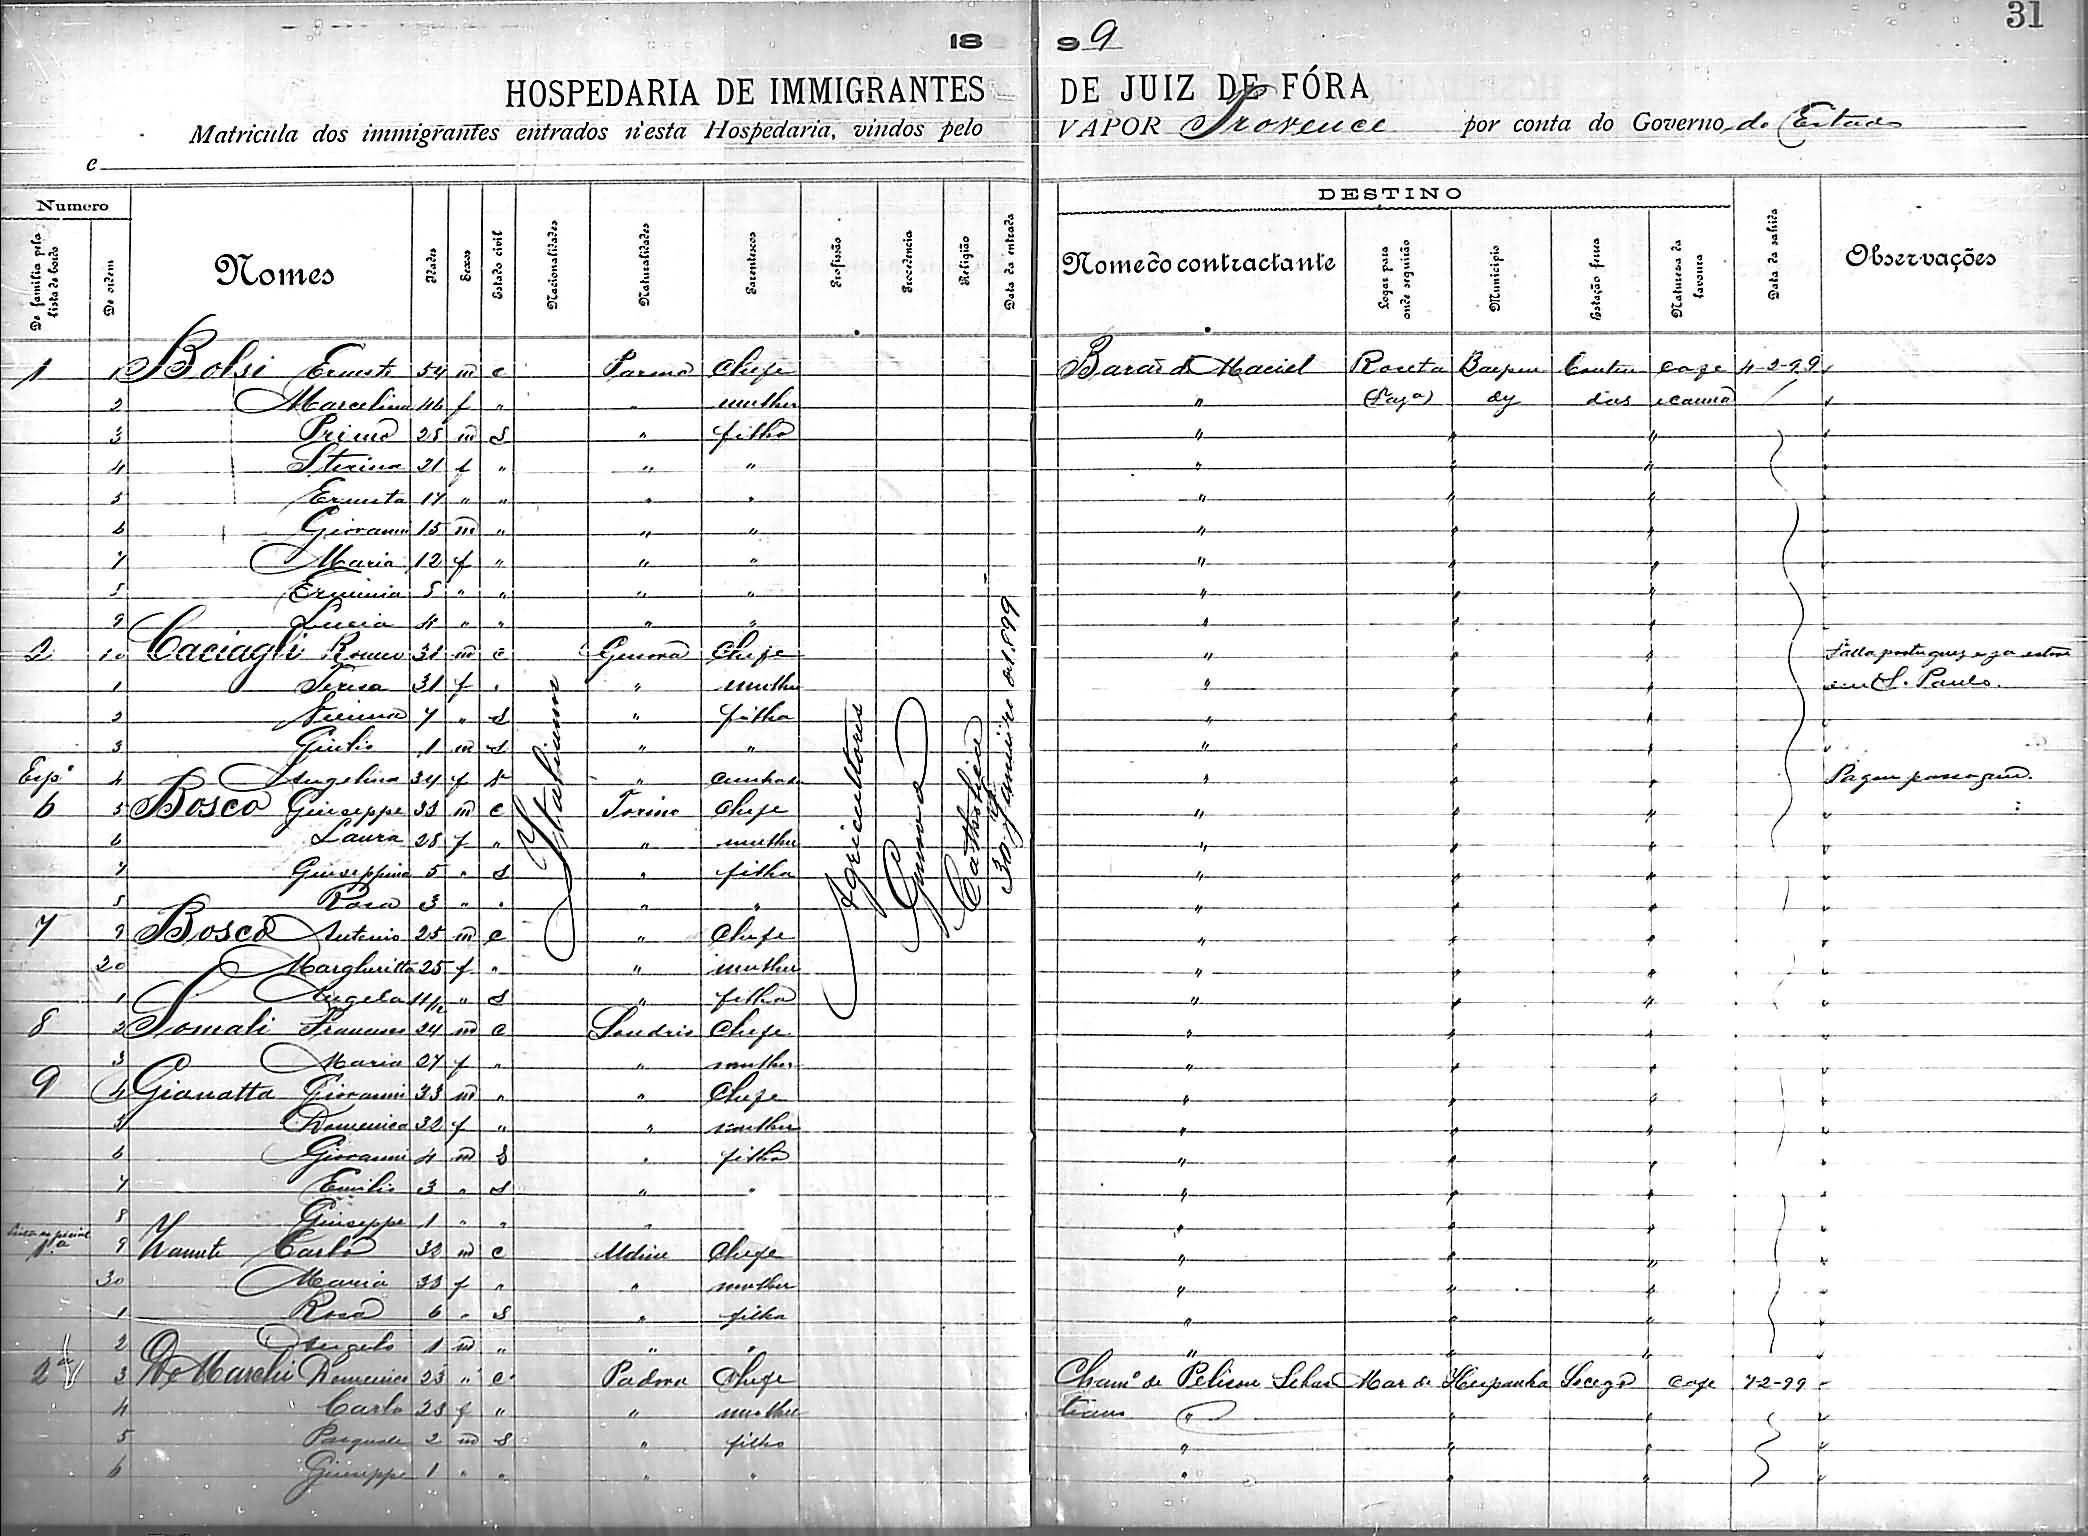 31
18 99
HOSPEDARIA DE IMMIGRANTES DE JUIZ DE FÓRA
Matricula dos immigrantes entrados n'esta Hospedaria, vindos pelo VAPOR Provence por conta do Governo do Estado
e
Numero DESTINO
De familia pela lista de bordo De ordem Nomes Idades Sexos Estado civil Nacionalidades Naturalidades Parentescos Profissão Procedencia Religião Data da entrada Nome do contractante Logar para onde seguirão Municipio Estação ferrea Natureza da lavoura Data da sahida Observações
Italiana Agricultores Genova Catholica 30 Janeiro de 1899
1 1 Bolsi Ernesto 54 m c Parma Chefe Barão de Maciel Roseta Baepen Conten cafe 4-2-99
2 Marcelina 46 f " " mulher " (Faza) dy das e canna
3 Primo 25 m S " filho " " "
4 21 f " " " " " "
5 Ernesta 17 " " " " " " "
6 Giovanni 15 m " " " " " "
7 Maria 12 f " " " " " "
5 Erminia 5 " " " " " " "
9 Lucia 4 " " " " " " "
2 10 Caciagli Romeo 31 m c Genova Chefe " " " Falla portuguez e ja esteve
1 Teresa 31 f " " mulher " " " em S. Paulo.
2 7 " S " filha " " "
3 Giulio 1 m S " " " " "
Esp. 4 Angelina 34 f S " cunhada " " " Pagou passagem.
6 5 Bosco Giuseppe 33 m c Torino Chefe " " "
6 Laura 28 f " " mulher " " "
7 Giuseppina 5 " S " filha " " "
5 Rosa 3 " " " " " " "
7 9 Bosco Antonio 25 m c " Chefe " " "
20 Margheritta 25 f " " mulher " " "
1 Angela 11/12 " S " filha " " "
8 2 Somali Francesco 24 m c Sondrio Chefe " " "
3 Maria 27 f " " mulher " " "
9 4 Gianatta Giovanni 33 m " " Chefe " " "
5 Domenica 32 f " " mulher " " "
6 Giovanni 4 m S " filho " " "
7 Emilio 3 " S " " " " "
8 Giuseppe 1 " " " " " "
9 Carlo 32 m c Udine Chefe " " "
30 Maria 33 f " " mulher " " "
1 Rosa 6 " S " filha " " "
2 Angelo 1 m " " " " " "
2ª 3 De Marchi Domenico 23 " c Padova Chefe Cham.º de Pelicou Sebas Mar de Hespanha Socego cafe 7-2-99
4 Carla 23 f " " mulher tiano " "
5 Pasquale 2 m S " filho " " "
6 Giuseppe 1 " " " " " " "